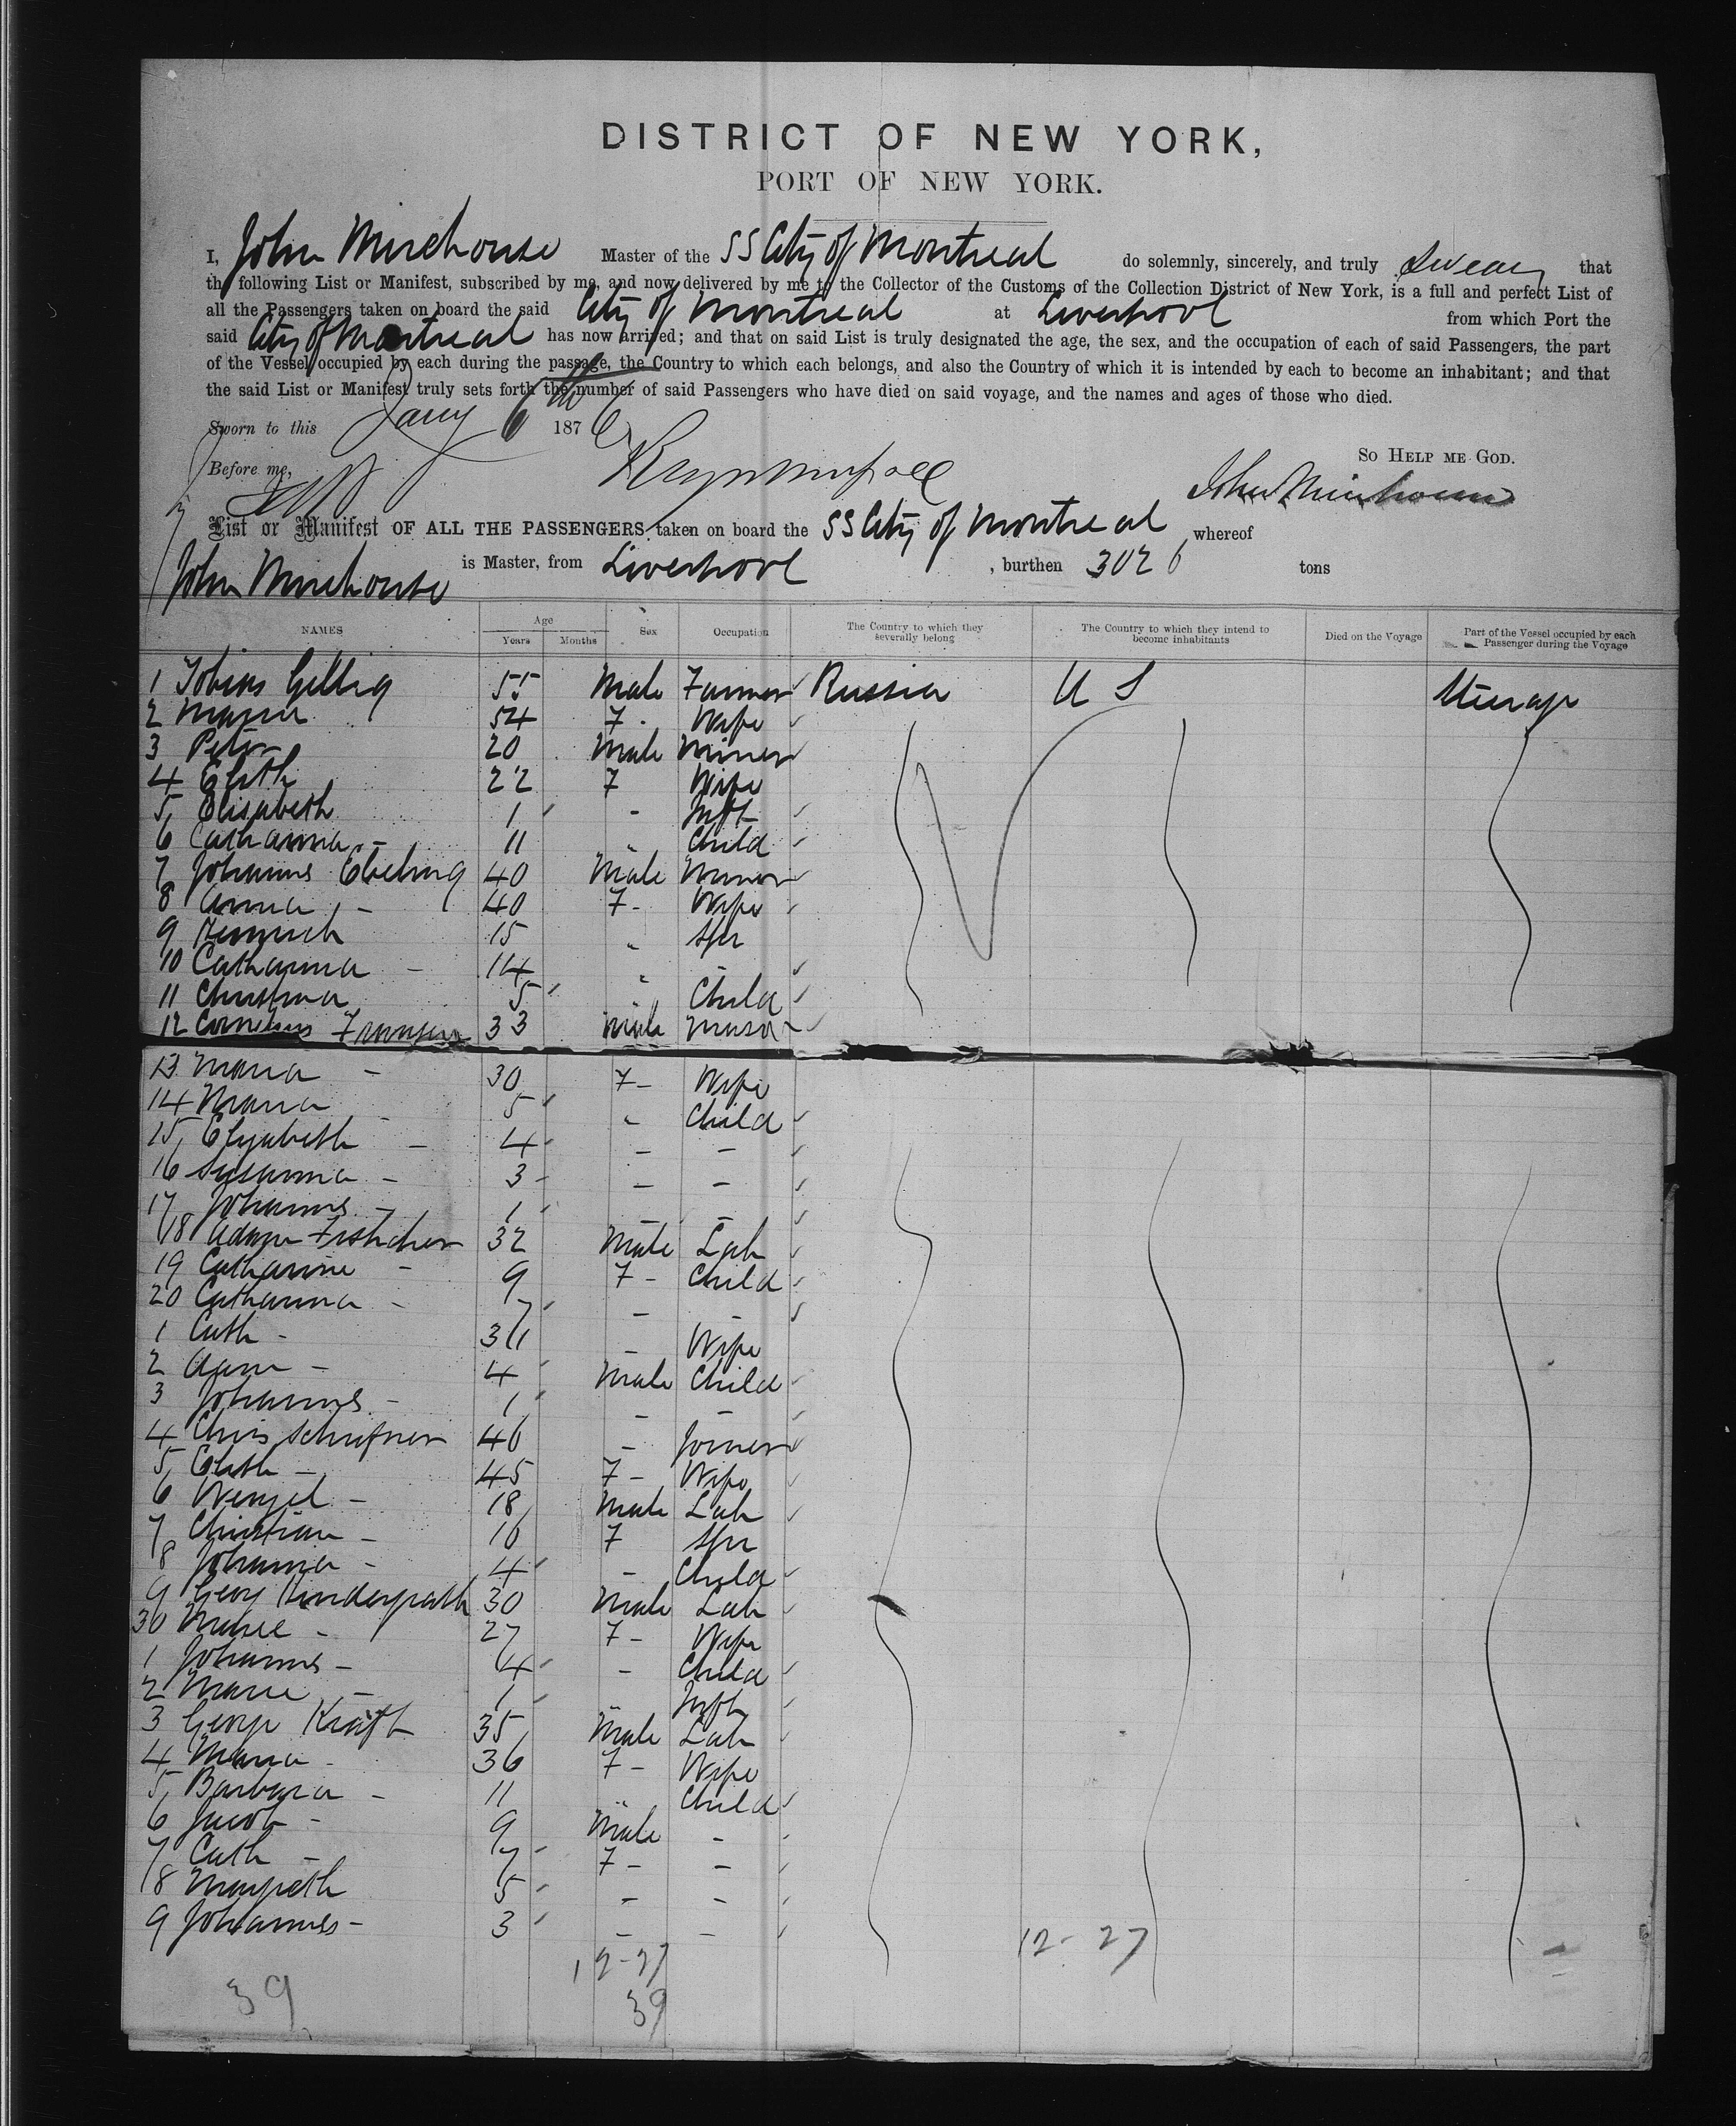 DISTRICT OF NEW YORK,
PORT OF NEW YORK.
I, John Mirehouse Master of the SS City of Montreal do solemnly, sincerely, and truly swear that
the following List or Manifest, subscribed by me, and now delivered by me to the Collector of the Customs of the Collection District of New York, is a full and perfect List of
all the Passengers taken on board the said City of Montreal at Liverpool from which Port the
said City of Montreal has now arrived; and that on said List is truly designated the age, the sex, and the occupation of each of said Passengers, the part
of the Vessel occupied by each during the passage, the Country to which each belongs, and also the Country of which it is intended by each to become an inhabitant; and that
the said List or Manifest truly sets forth the number of said Passengers who have died on said voyage, and the names and ages of those who died.
Sworn to this Jany 6th 1876
So Help me God.
Before me,
John Mirehouse
List or Manifest OF ALL THE PASSENGERS taken on board the SS City of Montreal whereof
John Mirehouse is Master, from Liverpool, burthen 3026 tons
NAMES Age Years Months Sex Occupation The Country to which they severally belong The Country to which they intend to become inhabitants Died on the Voyage Part of the Vessel occupied by each Passenger during the Voyage
1 Tobias Gellig 55 Male Farmer Russia U S Steerage
2 Maria 54 F - Wife
3 Peter 20 Male Miner
4 Elisth 22 F Wife
5 Elisabeth 1 - Inft
6 Catharina - 11 " Child
7 Johannes Ebeling 40 Male Miner
8 Anna - 40 F - Wife
9 15 " Spr
10 Catharina - 14 " -
11 Christina 5 " Child
12 Cornelius 33 Male Mason
13 Maria - 30 F - Wife
14 Maria 5 " Child
15 Elizabeth - 4 - -
16 Susanna - 3 - -
17 Johannes - 1 - -
18 Adam 32 Male Lab
19 Catharine - 9 F - Child
20 Catharina - 7 - -
1 Cath - 31 - Wife
2 Adam - 4 Male Child
3 Johannes - 1 - -
4 Chris 46 - Joiner
5 Elisth - 45 F - Wife
6 Wenzel - 18 Male Lab
7 Christian - 16 F Spr
8 Johanna - 4 - Child
9 Georg 30 Male Lab
30 - 27 F - Wife
1 Johannes - 4 - Child
2 Marie - 1 " Inft
3 George Kraft 35 Male Lab
4 Maria - 36 F - Wife
5 Barbara - 11 " Child
6 Jacob - 9 Male -
7 Cath - 7 F - -
8 Margreth 5 - -
9 Johannes - 3 - -
12-27 12-27
39 39